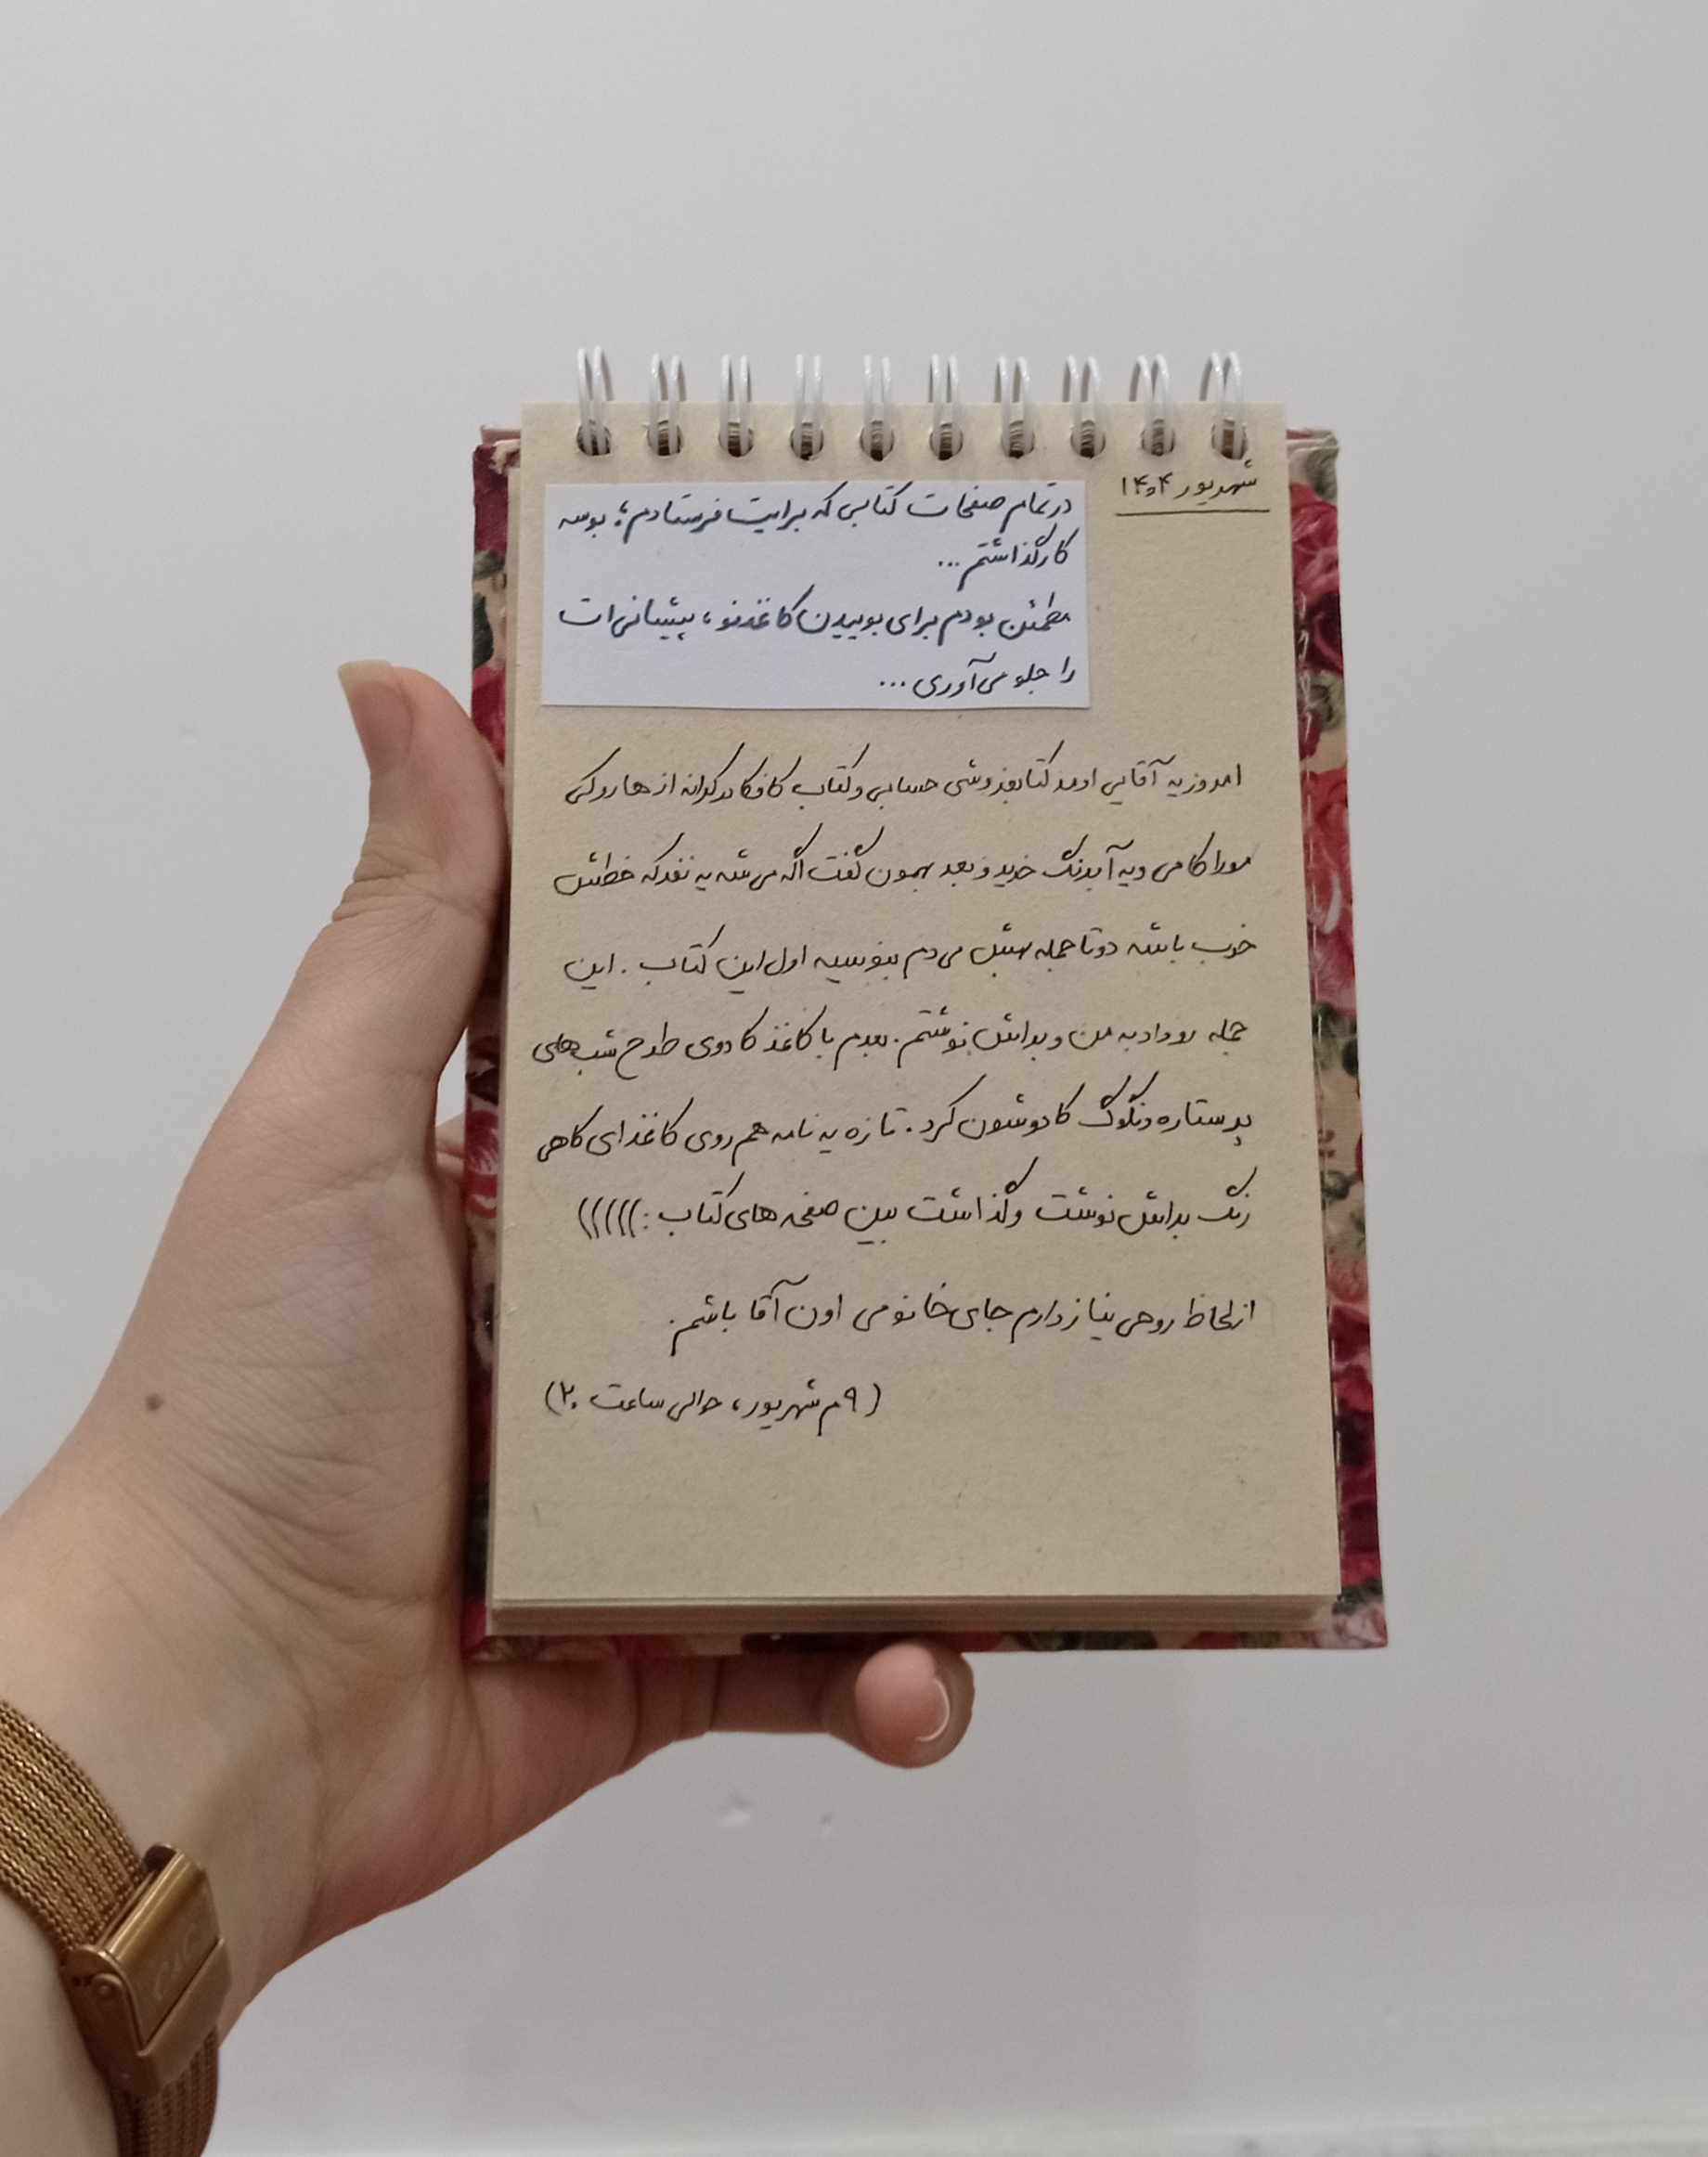 شهریور ۱۴۰۴
در تمام صفحات کتابی که برایت فرستادم؛ بوسه
کار گذاشتم...
مطمئن بودم برای بوییدن کاغذ نو، پیشانی‌ات
را جلو می‌آوری...
امروز یه آقایی اومد کتابفروشی حسابی و کتاب کافکا در کرانه از هاروکی
موراکامی و یه آبرنگ خرید و بعد بهمون گفت اگه می‌شه یه نفر که خطش
خوب باشه دو تا جمله بهش می‌دم بنویسه اول این کتاب. این
جمله رو داد به من و براش نوشتم. بعدم با کاغذ کادوی طرح شب‌های
پر ستاره ونگوگ کادوشون کرد. تازه یه نامه هم روی کاغذای کاهی
رنگ براش نوشت و گذاشت بین صفحه‌های کتاب :)))))
از لحاظ روحی نیاز دارم جای خانومی اون آقا باشم.
(۹م شهریور، حوالی ساعت ۲۰)